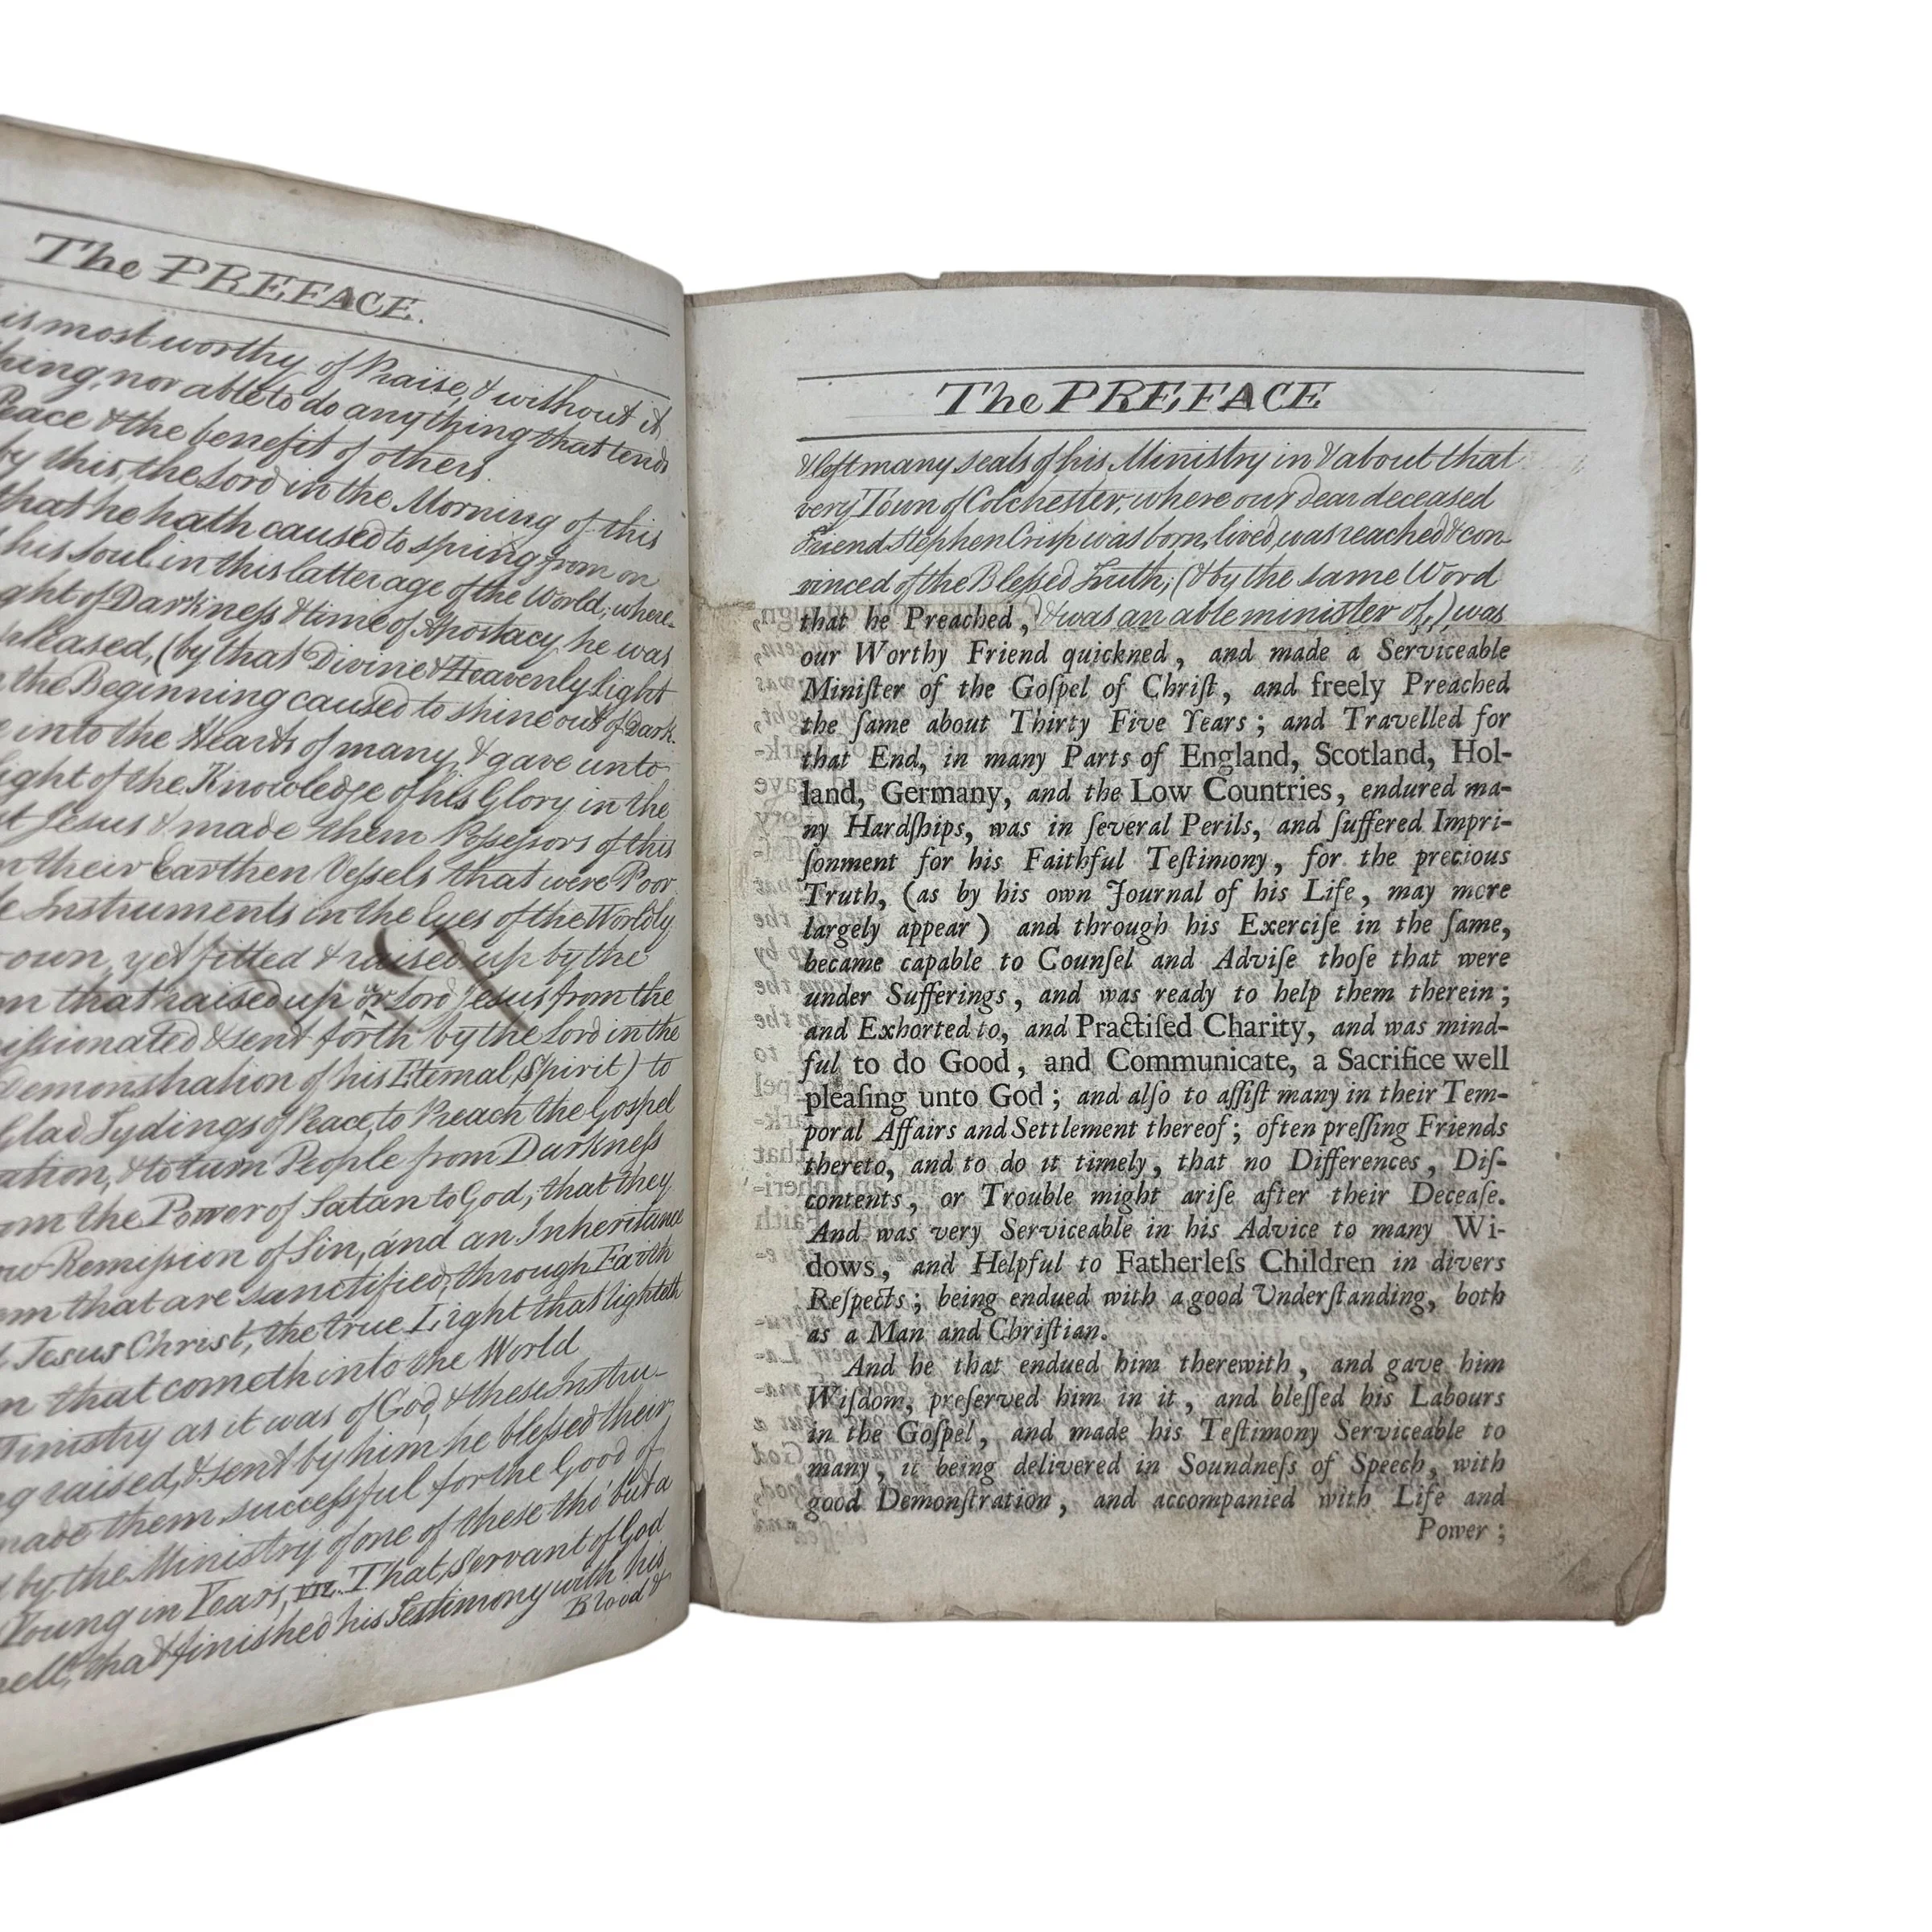 The PREFACE.
is most worthy of Praise, & without it
nor able to do any thing that tends
Peace & the benefit of others.
by this, the Lord in the Morning of this
that he hath caused to spring from on
his soul in this latter age of the World; where-
of Darkness & time of Apostacy he was
pleased, (by that Divine & Heavenly Light
the Beginning caused to shine out of Dark-
into the Hearts of many, & gave unto
Light of the Knowledge of his Glory in the
Jesus & made them Possessors of this
their Earthen Vessels that were Poor
Instruments in the Eyes of the Worldly
own, yet fitted & raised up by the
that raised up or Lord Jesus from the
& sent forth by the Lord in the
Demonstration of his Eternal Spirit) to
Glad Tydings of Peace, to Preach the Gospel
& to turn People from Darkness
the Power of Satan to God, that they
Remission of Sin, and an Inheritance
that are sanctified, through Faith
Jesus Christ, the true Light that lighteth
that cometh into the World
Ministry as it was of God, & these Instru-
raised, & sent by him, he blessed their
made them successful for the Good of
by the Ministry of one of these tho' but a
Young in Years, VIZ. That servant of God
that finished his Testimony with his
Blood &
The PREFACE
& left many seals of his Ministry in & about that
very Town of Colchester, where our dear deceased
Friend Stephen Crisp was born, lived, was reached & con-
vinced of the Blessed Truth; (& by the same Word
that he Preached, & was an able minister of,) was
our Worthy Friend quickned, and made a Serviceable
Miniſter of the Goſpel of Chriſt, and freely Preached
the ſame about Thirty Five Years; and Travelled for
that End, in many Parts of England, Scotland, Hol-
land, Germany, and the Low Countries, endured ma-
ny Hardſhips, was in ſeveral Perils, and ſuffered Impri-
ſonment for his Faithful Teſtimony, for the precious
Truth, (as by his own Journal of his Life, may more
largely appear) and through his Exerciſe in the ſame,
became capable to Counſel and Adviſe thoſe that were
under Sufferings, and was ready to help them therein;
and Exhorted to, and Practiſed Charity, and was mind-
ful to do Good, and Communicate, a Sacrifice well
pleaſing unto God; and alſo to aſſiſt many in their Tem-
poral Affairs and Settlement thereof; often preſſing Friends
thereto, and to do it timely, that no Differences, Diſ-
contents, or Trouble might ariſe after their Deceaſe.
And was very Serviceable in his Advice to many Wi-
dows, and Helpful to Fatherleſs Children in divers
Reſpects; being endued with a good Underſtanding, both
as a Man and Chriſtian.
And he that endued him therewith, and gave him
Wiſdom, preſerved him in it, and bleſſed his Labours
in the Goſpel, and made his Teſtimony Serviceable to
many, it being delivered in Soundneſs of Speech, with
good Demonſtration, and accompanied with Life and
Power;